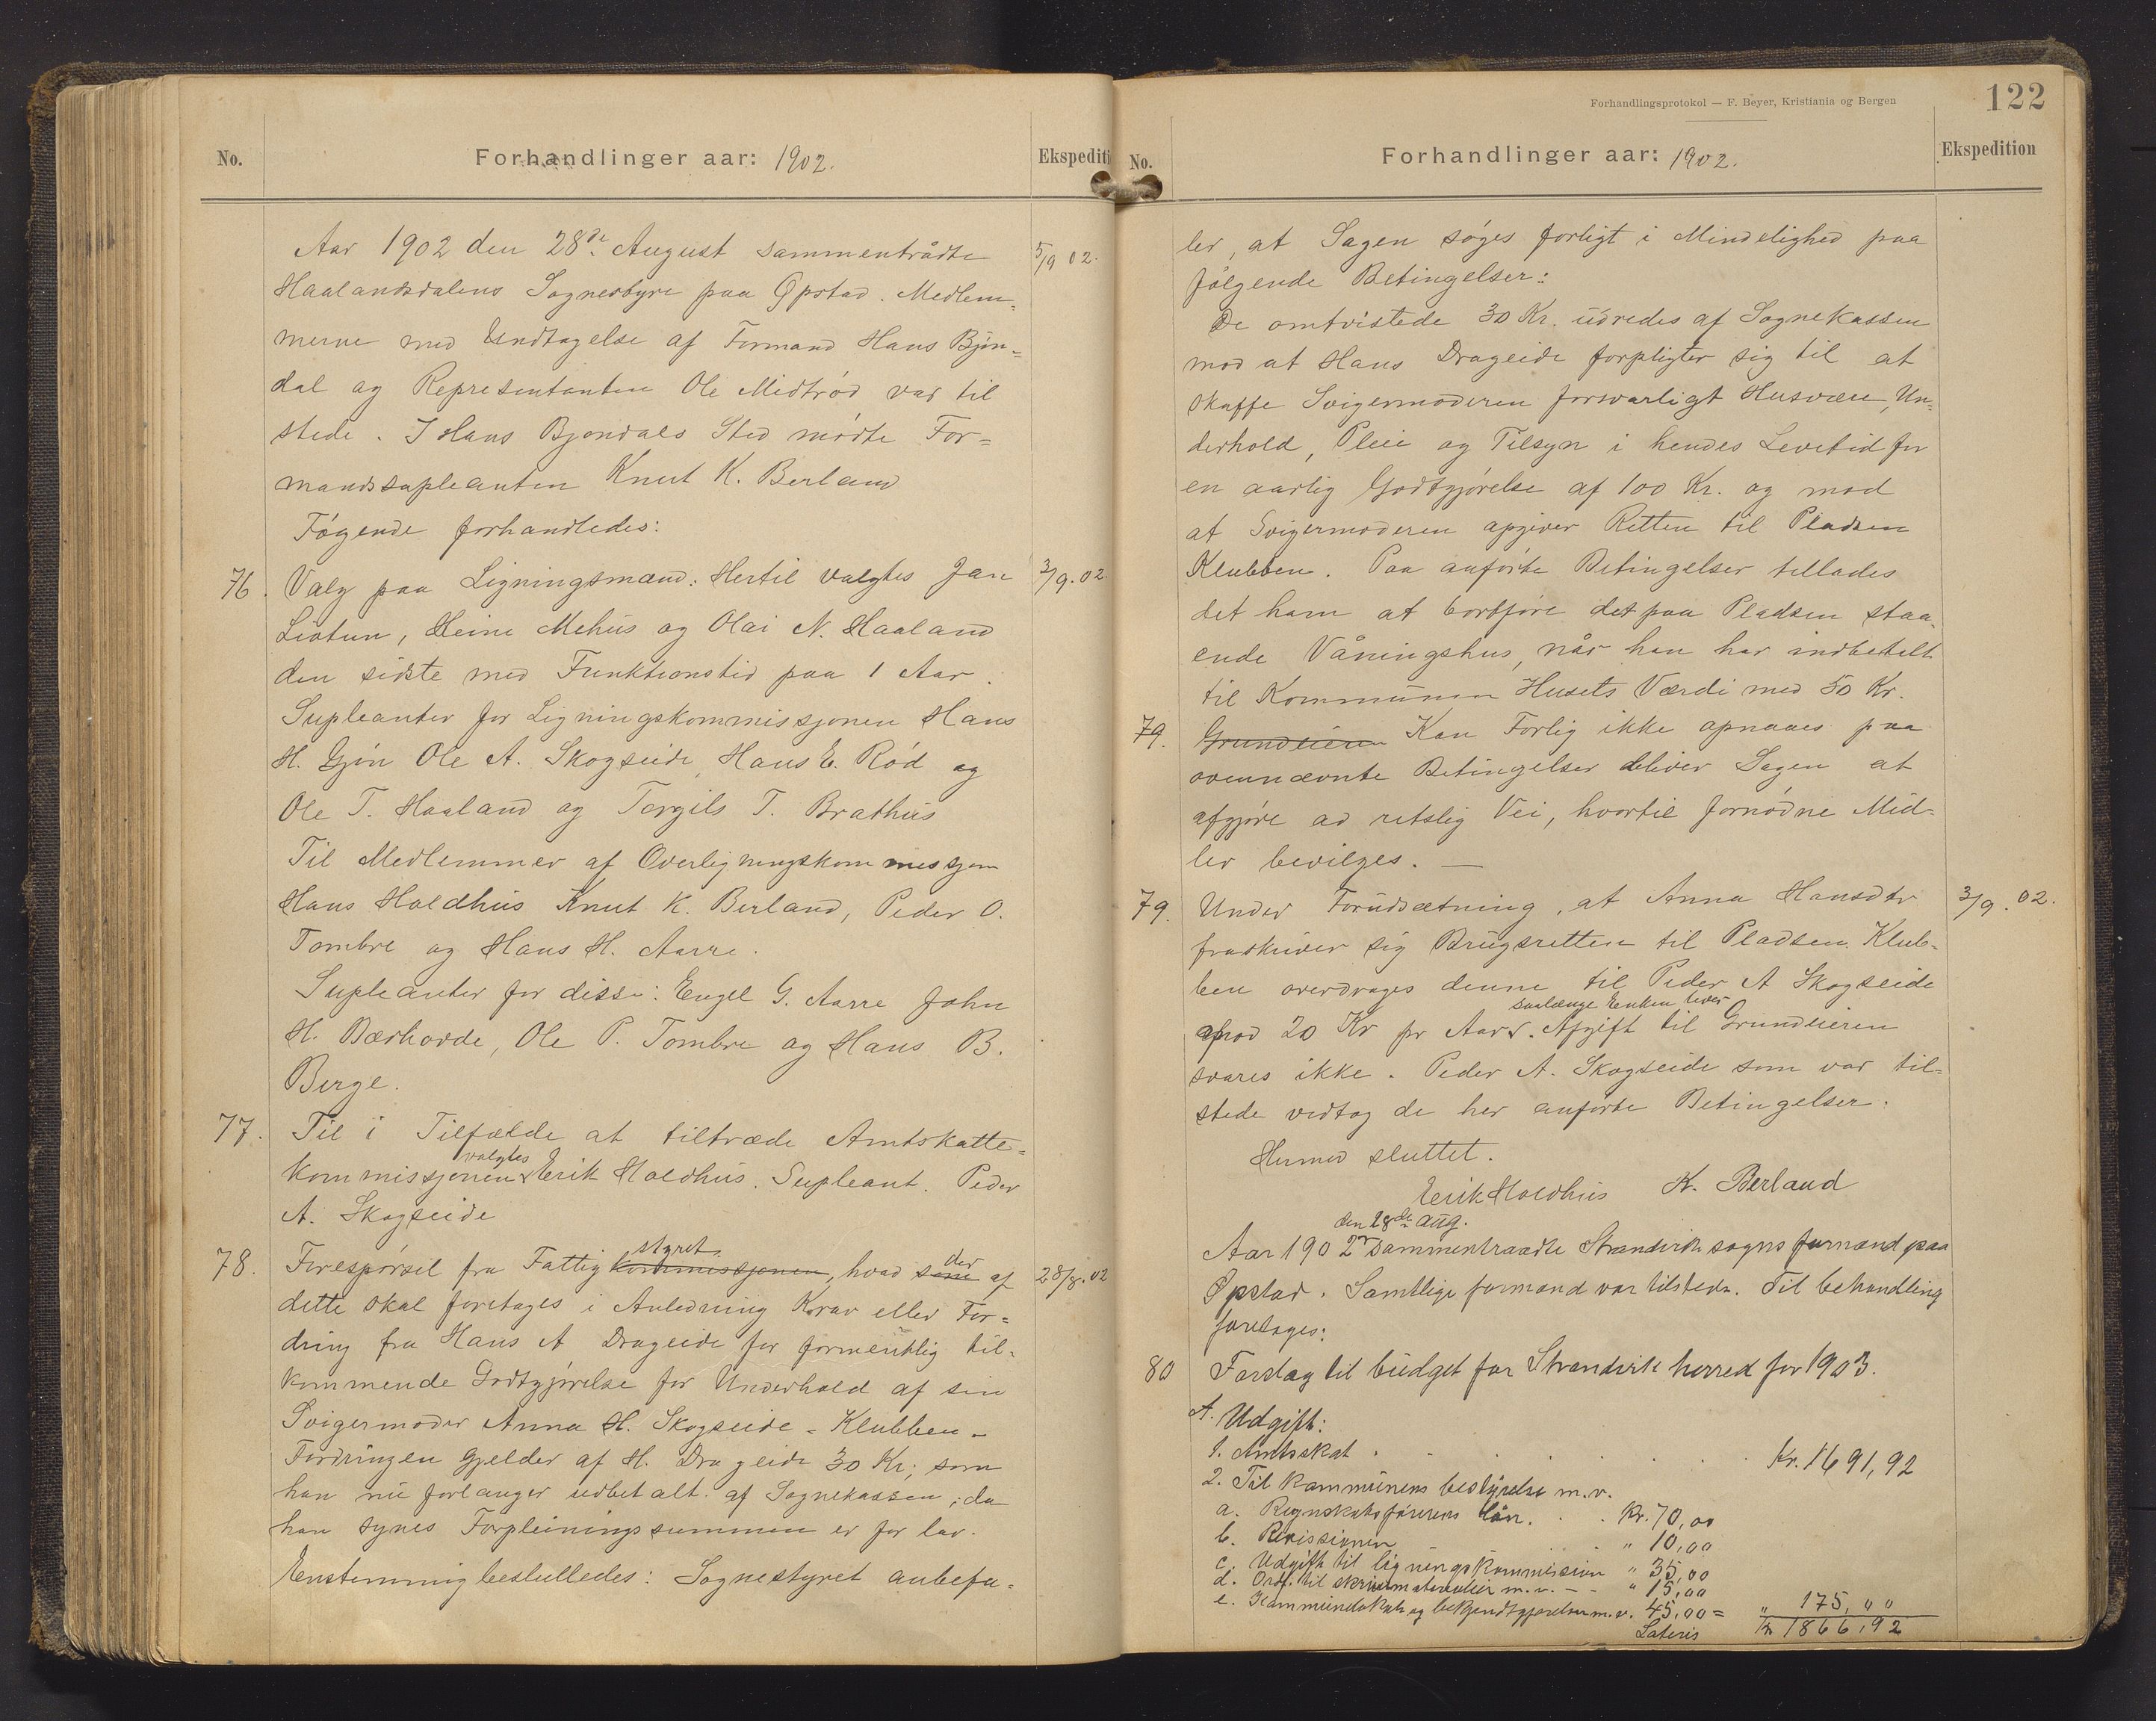 No.
Forhandlinger aar: 1902.
Ekspediti
Aar 1902 den 28de August sammentrådte
5/9 02.
Haalandsdalens Sognestyre paa Øpstad. Medlem-
merne med Undtagelse af Formand Hans Bjøn-
dal og Representanten Ole Midtrød var til
stede. I Hans Bjøndals Sted mødte For-
mandssupleanten Knut K. Berland
Følgende forhandledes:
76. Valg paa Ligningsmænd: Hertil valgtes Jan
3/9.02.
Liatun, Heine Mehus og Olai N. Haaland
den sidste med Funktionstid paa 1 Aar.
Supleanter for Ligningskommissjonen Hans
H. Gjøn Ole A. Skogseide, Hans E. Rød og
Ole T. Haaland og Torgils T. Brathus
Til Medlemmer af Overligningskommissjon
Hans Holdhus Knut K. Berland, Peder O.
Tombre og Hans H. Aarre.
Supleanter for disse: Engel G. Aarre John
H. Bærhovde, Ole P. Tombre og Hans B.
Berge.
77. Til i Tilfælde at tiltræde Amtskatte-
kommissjonen valgtes Erik Holdhus. Supleant. Peder
A. Skogseide
78. Forespørsel fra Fattigkommissjonen styret, hvad som der af
28/8.02
dette skal foretages i Anledning Krav eller For-
dring fra Hans A Drageide for formentlig til-
kommende Godtgjørelse for Underhold af sin
Svigermoder Anna H. Skogseide - Klubben -
Fordringen gjelder af H. Drageide 30 Kr; som
han nu forlanger udbetalt af Sognekassen, da
han synes Forpleiningssummen er for lav.
Enstemmig besluttedes: Sognestyret anbefa-
Forhandlingsprotokol — F. Beyer, Kristiania og Bergen
122
No.
Forhandlinger aar: 1902.
Ekspedition
ler, at Sagen søges forligt i Mindelighed paa
følgende Betingelser:
De omtvistede 30 Kr. udredes af Sognekassen
mod at Hans Drageide forpligter sig til at
skaffe Svigermoderen forsvarligt Husvære, Un-
derhold, Pleie og Tilsyn i hendes Levetid for
en aarlig Godtgjørelse af 100 Kr. og mod
at Svigermoderen opgiver Retten til Pladsen
Klubben. Paa anførte Betingelser tillades
det ham at bortføre det paa Pladsen staa-
ende Våningshus, når han har indbetalt
til Kommunen Husets Værdi med 50 Kr.
79. Grundeieren Kan Forlig ikke opnaaes paa
ovennævnte Betingelser bliver Sagen at
afgjøre ad retslig Vei, hvortil fornødne Mid-
ler bevilges. —
79. Under Forudsætning, at Anna Hansdtr
3/9.02.
fraskriver sig Brugsretten til Pladsen Klub-
ben overdrages denne til Peder A Skogseide
saalænge Enken lever
mod 20 Kr pr Aar. Afgift til Grundeieren
svares ikke. Peder A. Skogseide som var til-
stede vedtog de her anførte Betingelser.
Hermed sluttet.
Erik Holdhus K. Berland
den 28de aug.
Aar 1902 sammentraadte Strandvik sogns formænd paa
Øpstad. Samtlige formænd var tilstede. Til behandling
foretages:
80 Forslag til budget for Strandvik herred for 1903.
A. Udgift:
1. Amtsskat . . . . . . Kr. 1691,92
2. Til kommunens bestyrelse m.v.
a. Regnskabsførerens løn. . . Kr. 70,00
b. Revisionen . . " 10,00
c. Udgift til ligningskommission " 35,00
d. Ordf. til skrivematerialier m.v. - - " 15,00
e. Kommunelokale og bekjendtgjørelser m.v. 45,00 = " 175,00
Lateris Kr 1866,92